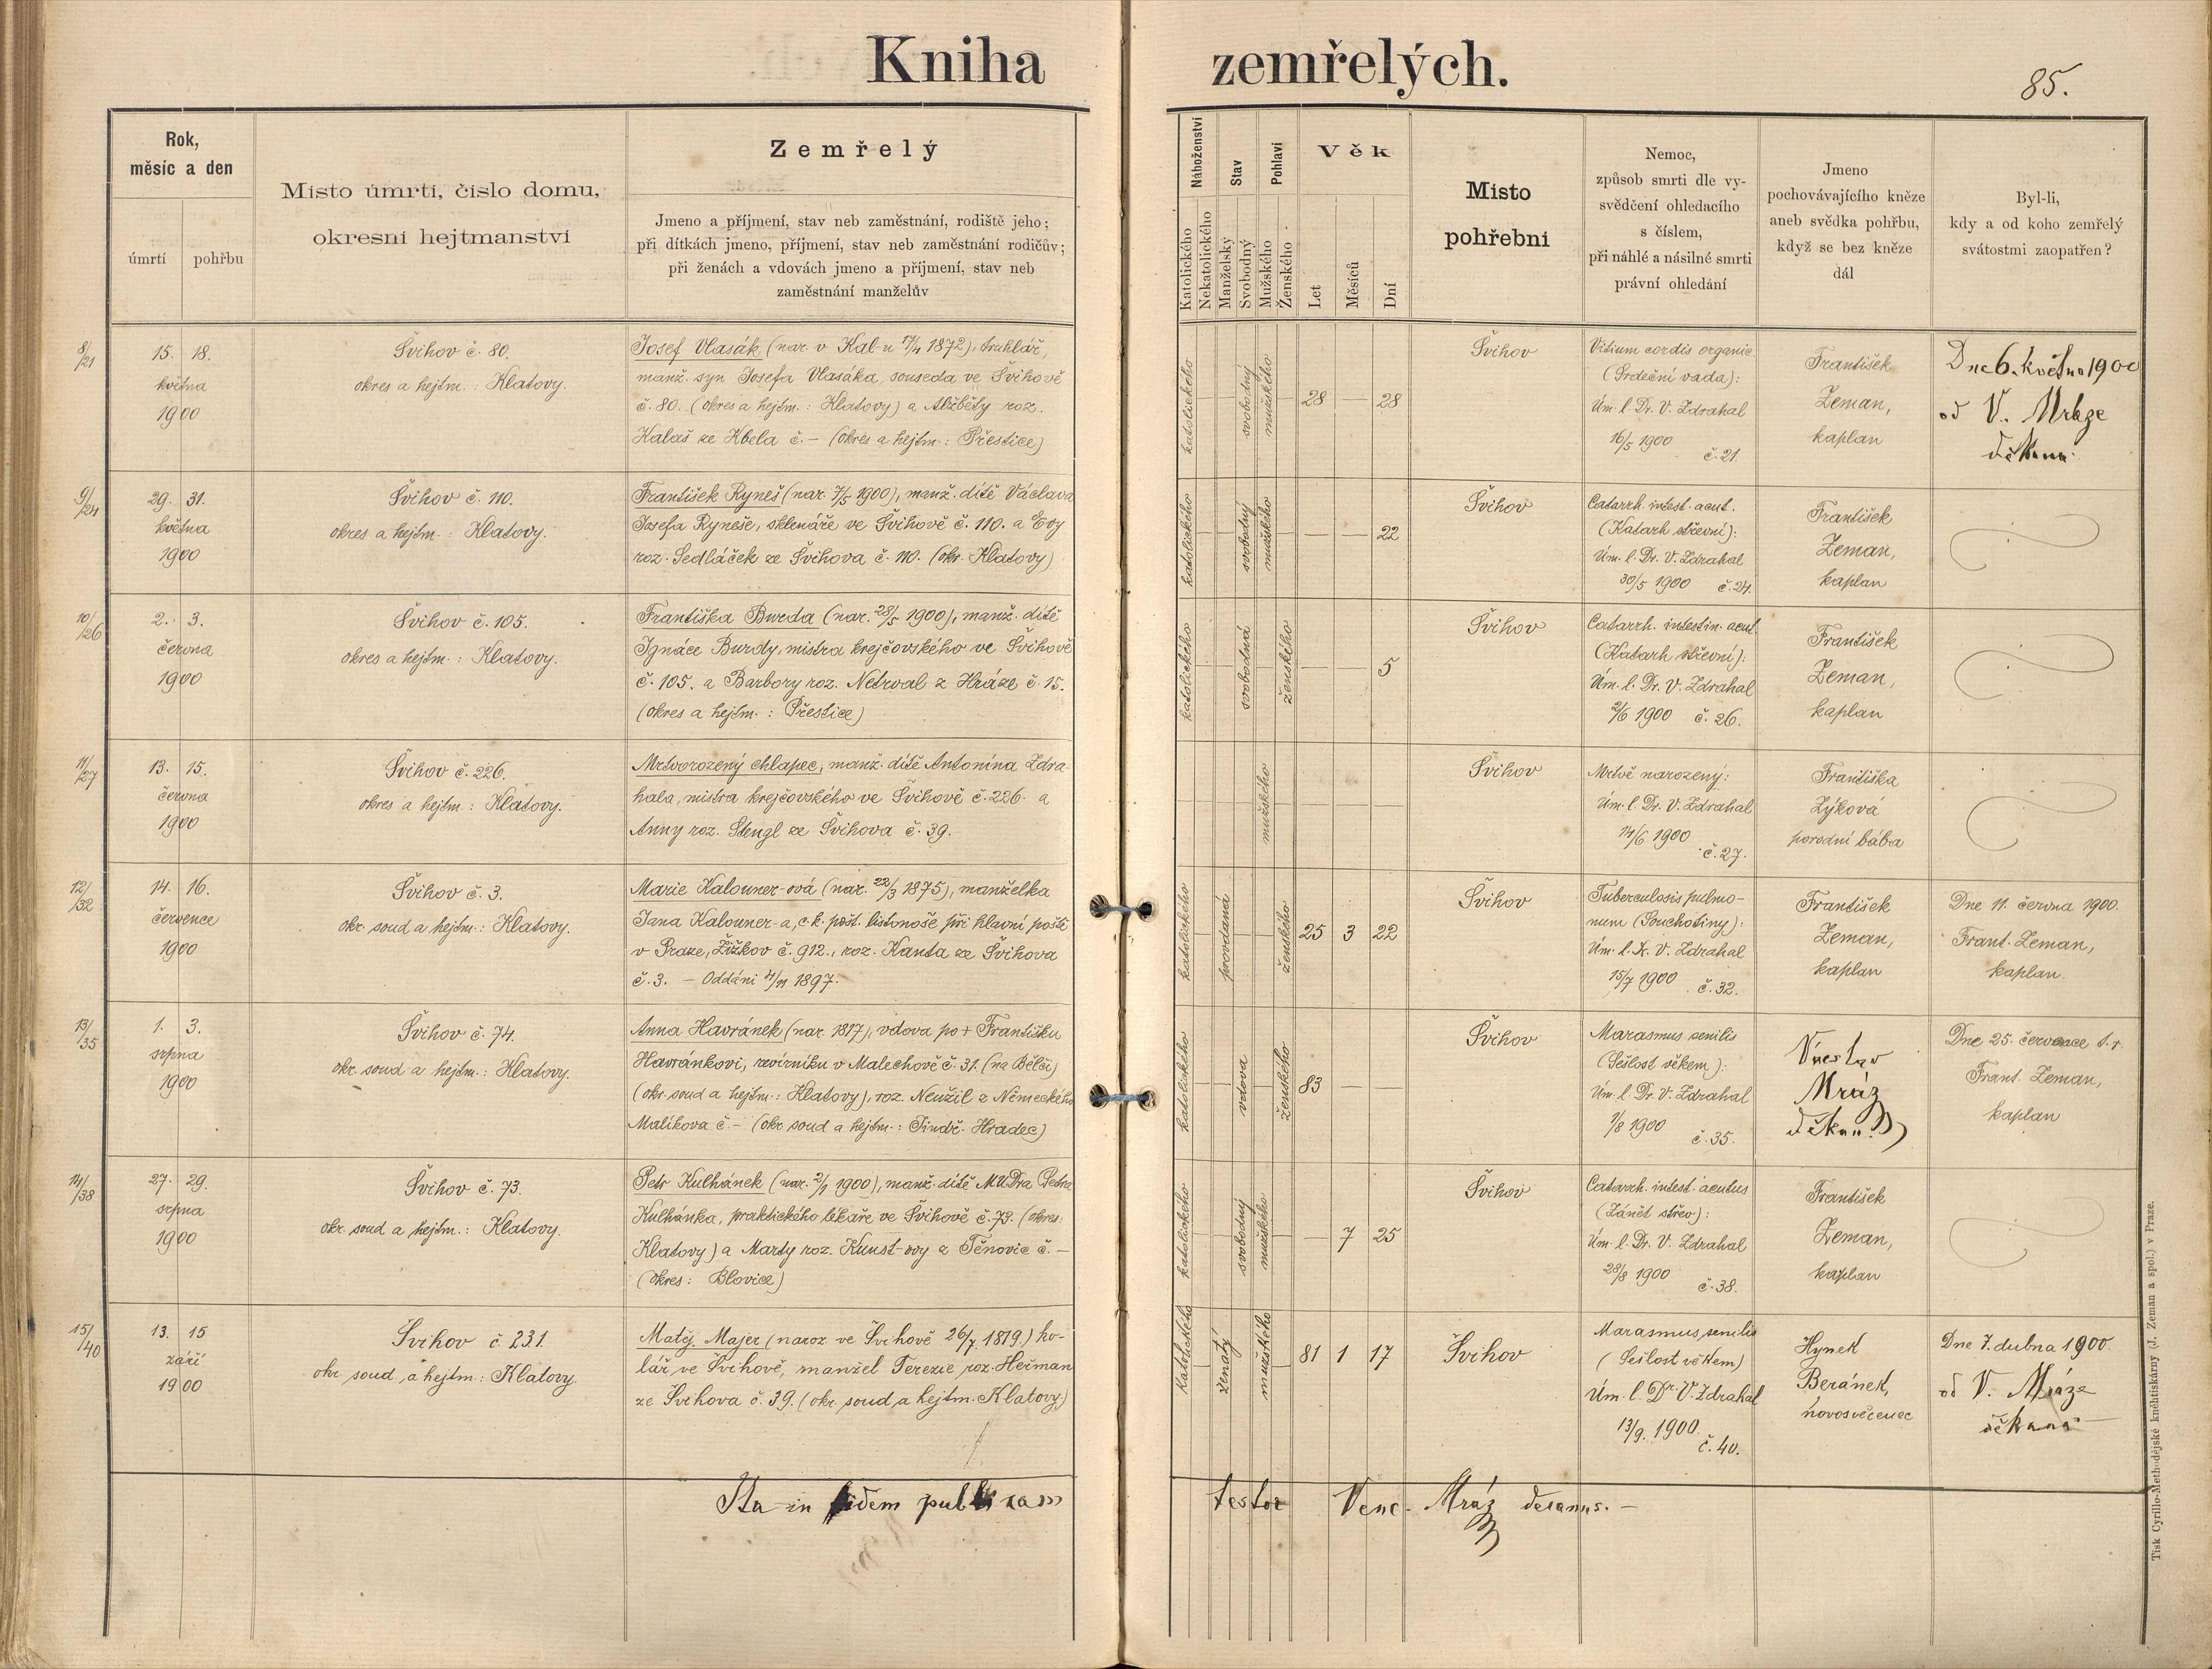 Kniha zemřelých.
85.
Rok,
měsíc a den
úmrtí
pohřbu
Místo úmrtí, číslo domu,
okresní hejtmanství
Zemřelý
Jmeno a příjmení, stav neb zaměstnání, rodiště jeho;
při dítkách jmeno, příjmení, stav neb zaměstnání rodičův;
při ženách a vdovách jmeno a příjmení, stav neb
zaměstnání manželův
Náboženství
Katolického
Nekatolického
Stav
Manželský
Svobodný
Pohlaví
Mužského
Ženského
Věk
Let
Měsíců
Dní
Místo
pohřební
Nemoc,
způsob smrti dle vy-
svědčení ohledacího
s číslem,
při náhlé a násilné smrti
právní ohledání
Jmeno
pochovávajícího kněze
aneb svědka pohřbu,
když se bez kněze
dál
Byl-li,
kdy a od koho zemřelý
svátostmi zaopatřen?
8/21
15. 18.
května
1900
Švihov č. 80.
okres a hejtm.: Klatovy.
Josef Vlasák (nar. v 1872), truhlář,
manž. syn Josefa Vlasáka, souseda ve Švihově
č. 80. (okres a hejtm.: Klatovy) a Alžběty roz.
Kalaš ze Kbela č. – (okres a hejtm.: Přestice)
katolického
svobodný
mužského
28 — 28
Švihov
Vitium cordis organic.
(Srdeční vada):
Úm. l. Dr. V. Zdrahal
16/5 1900
č. 21.
František
Zeman,
kaplan
Dne 6. května 1900
od V. Mráze
děkana.
9/24
29. 31.
května
1900
Švihov č. 110.
okres a hejtm.: Klatovy.
František Ryneš (nar. 7/5 1900), manž. dítě Václava
Josefa Ryneše, sklenáře ve Švihově č. 110. a Evy
roz. Sedláček ze Švihova č. 110. (okr. Klatovy)
katolického
svobodný
mužského
— — 22
Švihov
Catarrh. intest. acut.
(Katarh střevní):
Úm. l. Dr. V. Zdrahal
30/5 1900 č. 24.
František
Zeman,
kaplan
10/26
2. 3.
června
1900
Švihov č. 105.
okres a hejtm.: Klatovy.
Františka Burda (nar. 28/5 1900), manž. dítě
Ignáce Burdy, mistra krejčovského ve Švihově
č. 105. a Barbory roz. Netrval z Hráze č. 15.
(okres a hejtm.: Přestice)
katolického
svobodná
ženského
— — 5
Švihov
Catarrh. intestin. acut.
(Katarh střevní):
Úm. l. Dr. V. Zdrahal
2/6 1900 č. 26.
František
Zeman,
kaplan
11/27
13. 15.
června
1900
Švihov č. 226.
okres a hejtm.: Klatovy.
Mrtvorozený chlapec, manž. dítě Antonína Zdra-
hala, mistra krejčovského ve Švihově č. 226. a
Anny roz. Stengl ze Švihova č. 39.
mužského
— — —
Švihov
Mrtvě narozený:
Úm. l. Dr. V. Zdrahal
14/6 1900
č. 27.
Františka
Zýková
porodní bába
12/32
14. 16.
července
1900
Švihov č. 3.
okr. soud a hejtm.: Klatovy.
Marie Kalouner-ová (nar. 22/3 1875), manželka
Jana Kalouner-a, c. k. pošt. listonoše při hlavní poště
v Praze, Žižkov č. 912., roz. Kanta ze Švihova
č. 3. — Oddáni 4/11 1897.
katolického
provdaná
ženského
25 3 22
Švihov
Tuberculosis pulmo-
num (Souchotiny):
Úm. l. V. Zdrahal
15/7 1900 č. 32.
František
Zeman,
kaplan
Dne 11. června 1900.
Frant. Zeman,
kaplan.
13/35
1. 3.
srpna
1900
Švihov č. 74.
okr. soud a hejtm.: Klatovy.
Anna Havránek (nar. 1817), vdova po + Františku
Havránkovi, revírníku v Malechově č. 31. (na Bělči)
(okr. soud a hejtm.: Klatovy), roz. Neužil z Německého
Malíkova č. – (okr. soud a hejtm.: Jindř. Hradec)
katolického
vdova
ženského
83 — —
Švihov
Marasmus senilis
(Sešlost věkem):
Úm. l. Dr. V. Zdrahal
1/8 1900
č. 35.
Mráz
děkan.
Dne 25. července t. r.
Frant. Zeman,
kaplan
14/38
27. 29.
srpna
1900
Švihov č. 73.
okr. soud a hejtm.: Klatovy.
Petr Kulhánek (nar. 2/1 1900), manž. dítě MUDra Petra
Kulhánka, praktického lékaře ve Švihově č. 73. (okres:
Klatovy) a Marty roz. Kunst-ovy z Těnovic č. –
(okres: Blovice)
katolického
svobodný
mužského
— 7 25
Švihov
Catarrh. intest. acutus
(Zánět střev):
Úm. l. Dr. V. Zdrahal
28/8 1900
č. 38.
František
Zeman,
kaplan
15/40
13. 15
září
1900
Švihov č. 231.
okr. soud, a hejtm.: Klatovy.
Matěj Majer (naroz. ve Švihově 26/7 1819.) ko-
lář, ve Švihově, manžel Terezie, roz. Heřman
ze Švihova č. 39. (okr. soud a hejtm. Klatovy.)
Katolického
ženatý
mužského
81 1 17
Švihov
Marasmus senilis
(Sešlost věkem)
Úm. l. Dr. V. Zdrahal
13/9. 1900.
č. 40.
Hynek
Beránek,
novosvěcenec
Dne 7. dubna 1900.
od V. Mráze
děkana
Ita in fidem publicam testor Venc. Mráz decanus. —
Tisk Cyrillo-Methodějské knihtiskárny (J. Zeman a spol.) v Praze.